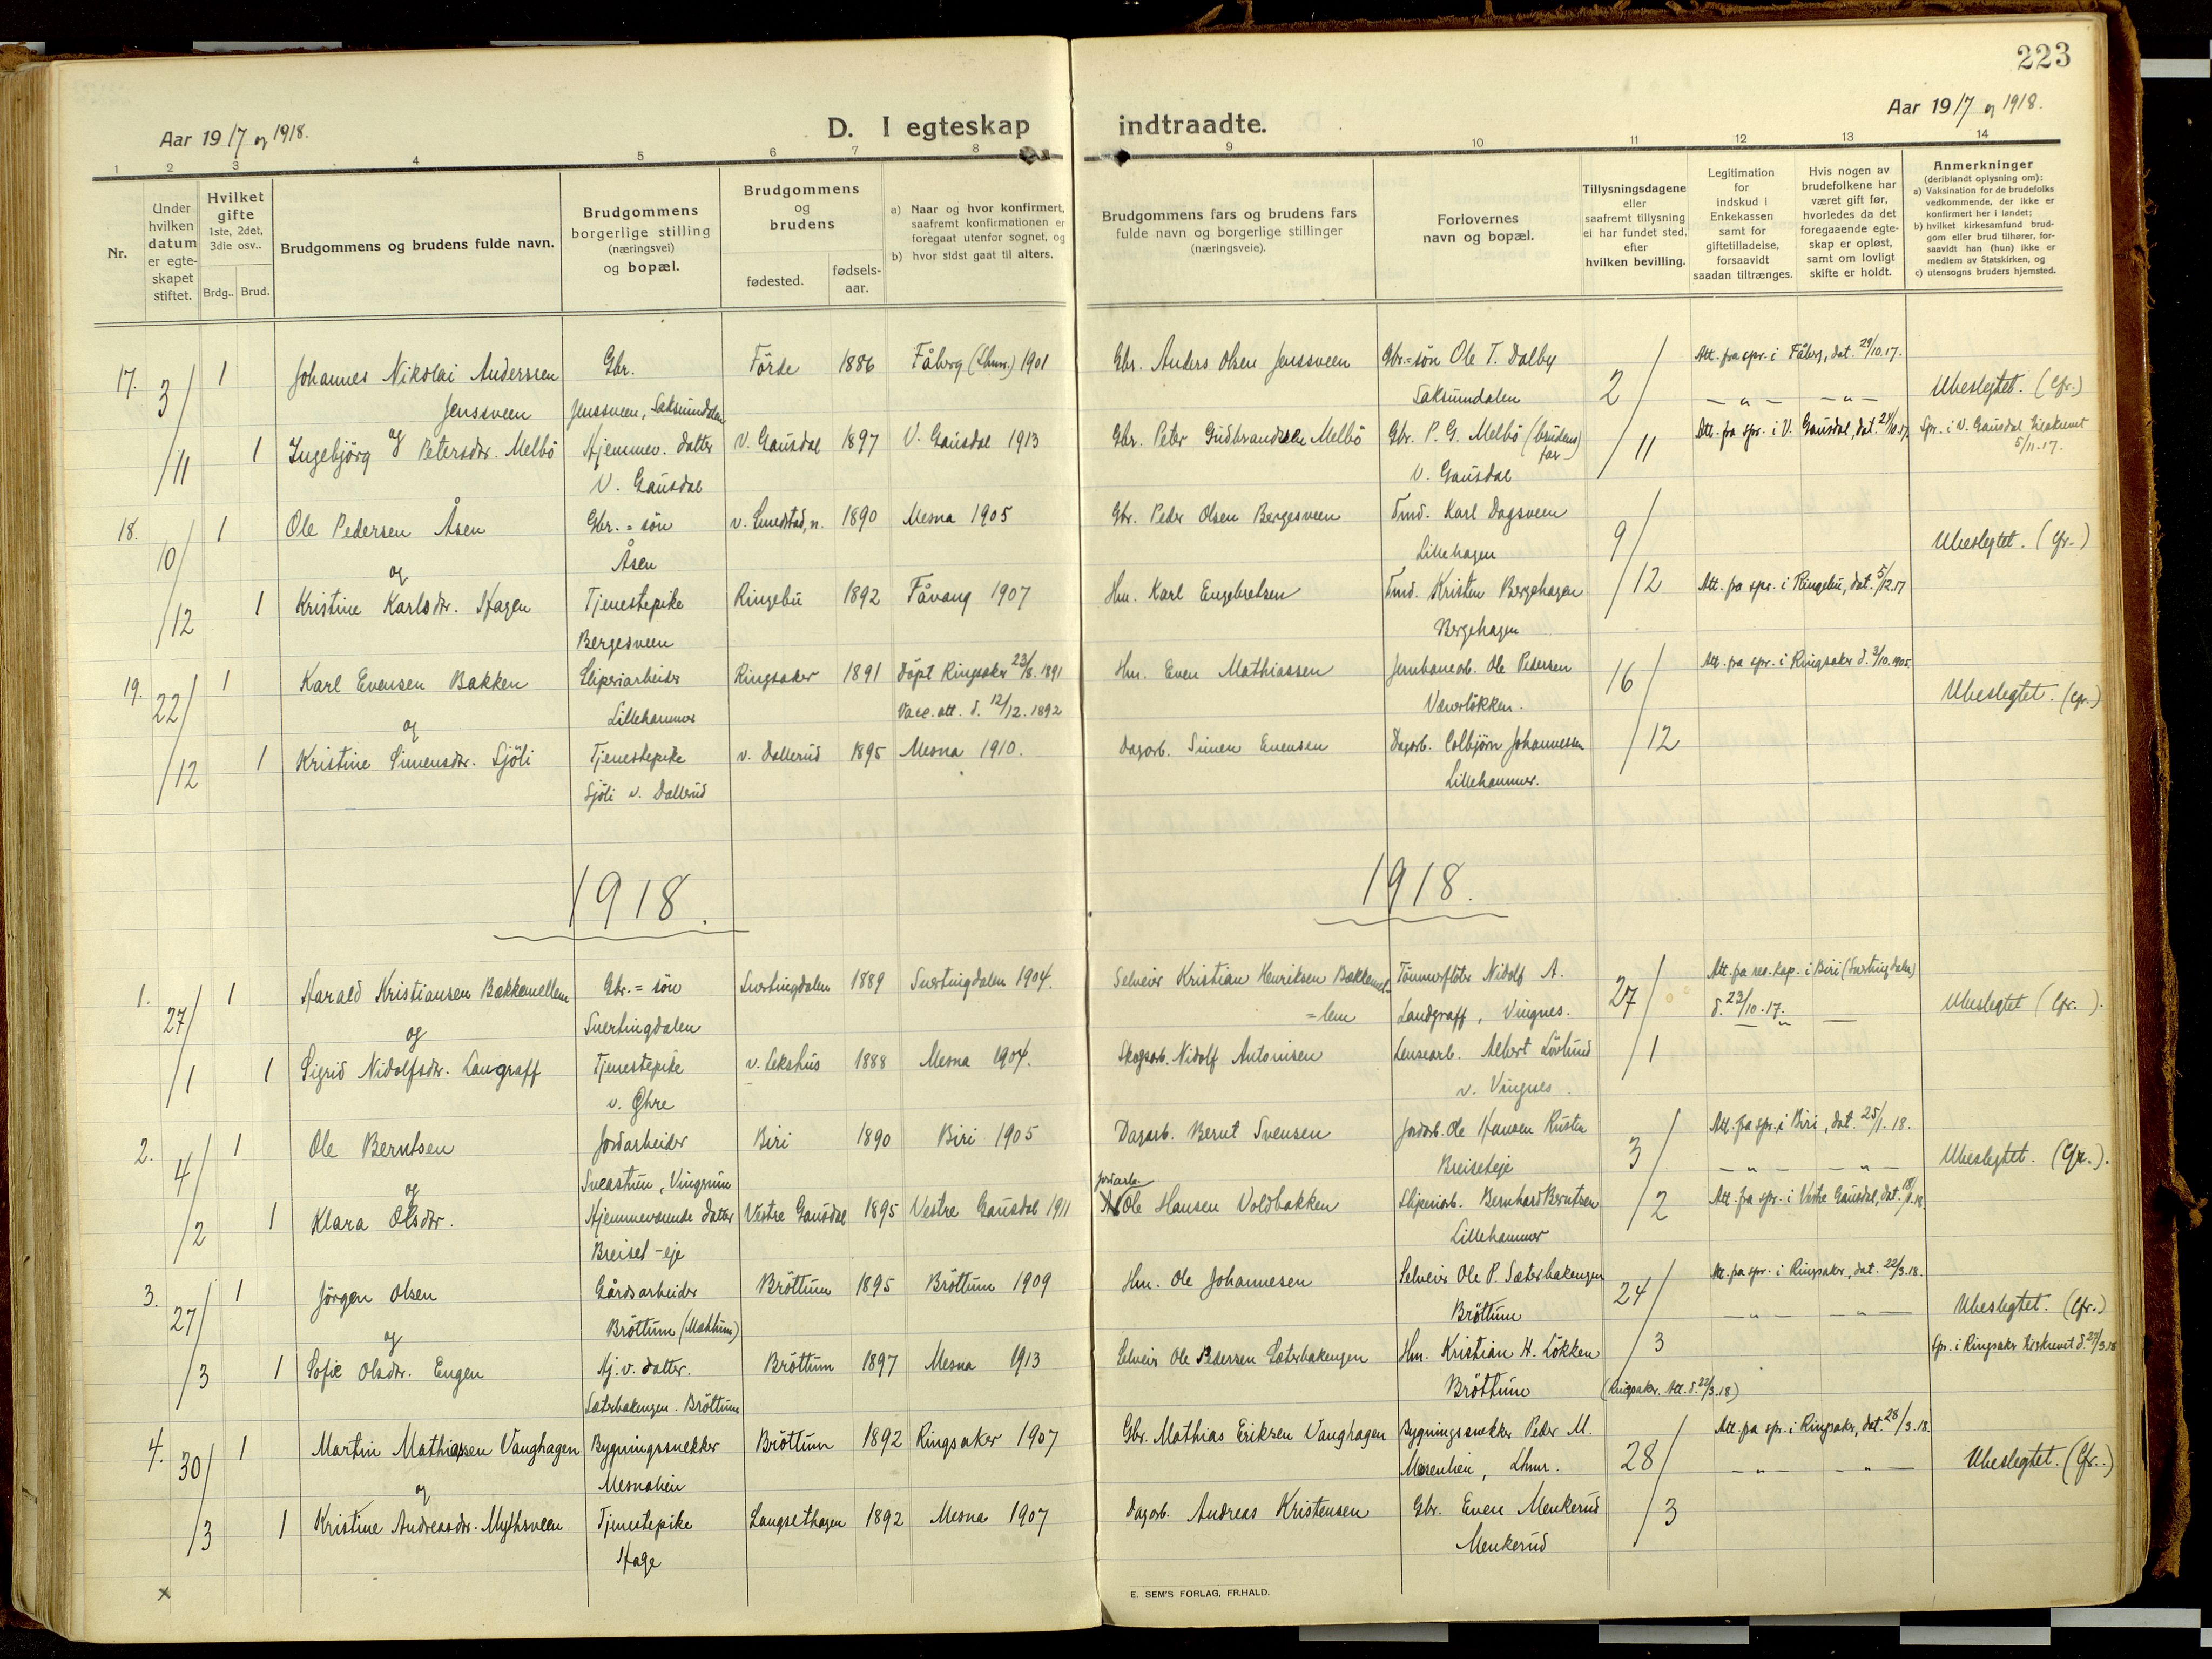 223
Aar 1917 og 1918.
D. I egteskap indtraadte.
Aar 1917 og 1918.
1 2 3 4 5 6 7 8 9 10 11 12 13 14
Nr.
Under hvilken datum er egteskapet stiftet.
Hvilket gifte 1ste, 2det, 3die osv..
Brdg.. Brud.
Brudgommens og brudens fulde navn.
Brudgommens borgerlige stilling (næringsvei) og bopæl.
Brudgommens og brudens
fødested. fødselsaar.
a) Naar og hvor konfirmert, saafremt konfirmationen er foregaat utenfor sognet, og
b) hvor sidst gaat til alters.
Brudgommens fars og brudens fars fulde navn og borgerlige stillinger (næringsveie).
Forlovernes navn og bopæl.
Tillysningsdagene eller saafremt tillysning ei har fundet sted, efter hvilken bevilling.
Legitimation for indskud i Enkekassen samt for giftetilladelse, forsaavidt saadan tiltrænges.
Hvis nogen av brudefolkene har været gift før, hvorledes da det foregaaende egteskap er opløst, samt om lovligt skifte er holdt.
Anmerkninger
(deriblandt oplysning om):
a) Vaksination for de brudefolks vedkommende, der ikke er konfirmert her i landet;
b) hvilket kirkesamfund brudgom eller brud tilhører, forsaavidt han (hun) ikke er medlem av Statskirken, og
c) utensogns bruders hjemsted.
17. 3/11 1 Johannes Nikolai Anderssen Gbr. Förde 1886 Fåberg (Lhmr.) 1901 Gbr. Anders Olsen Jenssveen Gbr.=søn Ole T. Dalby 2/11 Att. fra spr. i Fåberg, dat. 29/10.17.
Jenssveen Jenssveen, Saksumdalen Saksumdalen - " - - " - Ubeslegtet. (Cfr.)
og
1 Ingebjörg Petersdr. Melbö Hjemmev. datter V. Gausdal 1897 V. Gausdal 1913 Gbr. Peter Gudbrandsen Melbö Gbr. P. G. Melbö (brudens far) Att. fra spr. i V. Gausdal, dat. 24/10.17. Spr. i V. Gausdal tilskrevet 5/11.17.
V. Gausdal V. Gausdal
18. 10/12 1 Ole Pedersen Åsen Gbr.=søn v. Smedstad, n. 1890 Mesna 1905 Gbr. Peder Olsen Bergesveen Tmd. Karl Dagsveen 9/12 Ubeslegtet. (Cfr.)
og Åsen Lillehagen
1 Kristine Karlsdr. Hagen Tjenestepike Ringebu 1892 Fåvang 1907 Hm. Karl Engebretsen Tmd. Kristen Bergehagen Att. fra spr. i Ringebu, dat. 5/12.17
Bergesveen Bergehagen
19. 22/12 1 Karl Evensen Bakken Sliperiarbeider Ringsaker 1891 Döpt Ringsaker 23/8. 1891 Hm. Even Mathiassen Jernbanearb. Ole Pedersen 16/12 Att. fra spr. i Ringsaker d. 3/10.1905.
og Lillehammer Vacc. att. d. 12/12. 1892 Ubeslegtet. (Cfr.)
1 Kristine Simensdr. Sjöli Tjenestepike v. Dallerud 1895 Mesna 1910. Dagarb. Simen Evensen Dagarb. Colbjörn Johannessen
Sjöli v. Dallerud Lillehammer.
1918. 1918.
1. 27/1 1 Harald Kristiansen Bakkemellem Gbr.=søn Snertingdalen 1889 Snertingdalen 1904. Selveier Kristian Henriksen Bakkemel= Tömmerflöter Nidolf A. 27/1 Att. fra res. kap. i Biri (Snertingdalen)
og Snertingdalen =lem Landgraff, Vingnes. d. 23/10.17. Ubeslegtet (Cfr.).
1 Sigrid Nidolfsdr. Langraff Tjenestepike v. Lekshus 1888 Mesna 1904. Skogsarb. Nidolf Antonisen Lensearb. Albert Lövlund
v. Öhre v. Vingnes
2. 4/2 1 Ole Berntsen Jordarbeider Biri 1890 Biri 1905 Dagarb. Bernt Svensen Jordarb. Ole Hansen 3/2 Att. fra spr. i Biri, dat. 25/1.18.
og Vingrum Breiseteje - " - - " - Ubeslegtet. (Cfr.).
1 Klara Olsdr. Hjemmeværende datter Vestre Gausdal 1895 Vestre Gausdal 1911 Jordarb. Ole Hansen Voldbakken Sliperiarb. Bernhard Berntsen Att. fra spr. i Vestre Gausdal, dat.
Breiset-eje Lillehammer
3. 27/3 1 Jörgen Olsen Gårdsarbeider Bröttum 1895 Bröttum 1909 Hm. Ole Johannesen Selveier Ole P. Sæterbakengen 24/3 Att. fra spr. i Ringsaker, dat. 22/3.18.
og Bröttum Bröttum - " - - " - Ubeslegtet. (Cfr.)
1 Sofie Olsdr. Engen Hj.v. datter. Bröttum 1897 Mesna 1913 Selveier Ole Pedersen Sæterbakengen Hm. Kristian H. Lökken Spr. i Ringsaker tilskrevet d. 27/3.18
Sæterbakengen. Bröttum Bröttum (Ringsaker. Att. d. 22/3.18)
4. 30/3 1 Martin Mathiassen Vanghagen Bygningssnekker Bröttum 1892 Ringsaker 1907 Gbr. Mathias Eriksen Vanghagen Bygningssnekker Peder M. 28/3 Att. fra spr. i Ringsaker, dat. 28/3.18.
og Mesnalien Lhmr. - " - - " - Ubeslegtet. (Cfr.)
1 Kristine Andreasdr. Mythsveen Tjenestepike Langsethagen 1892 Mesna 1907 Dagarb. Andreas Kristensen Gbr. Even Menkerud
Hage Menkerud
x
E. SEM'S FORLAG, FR.HALD.